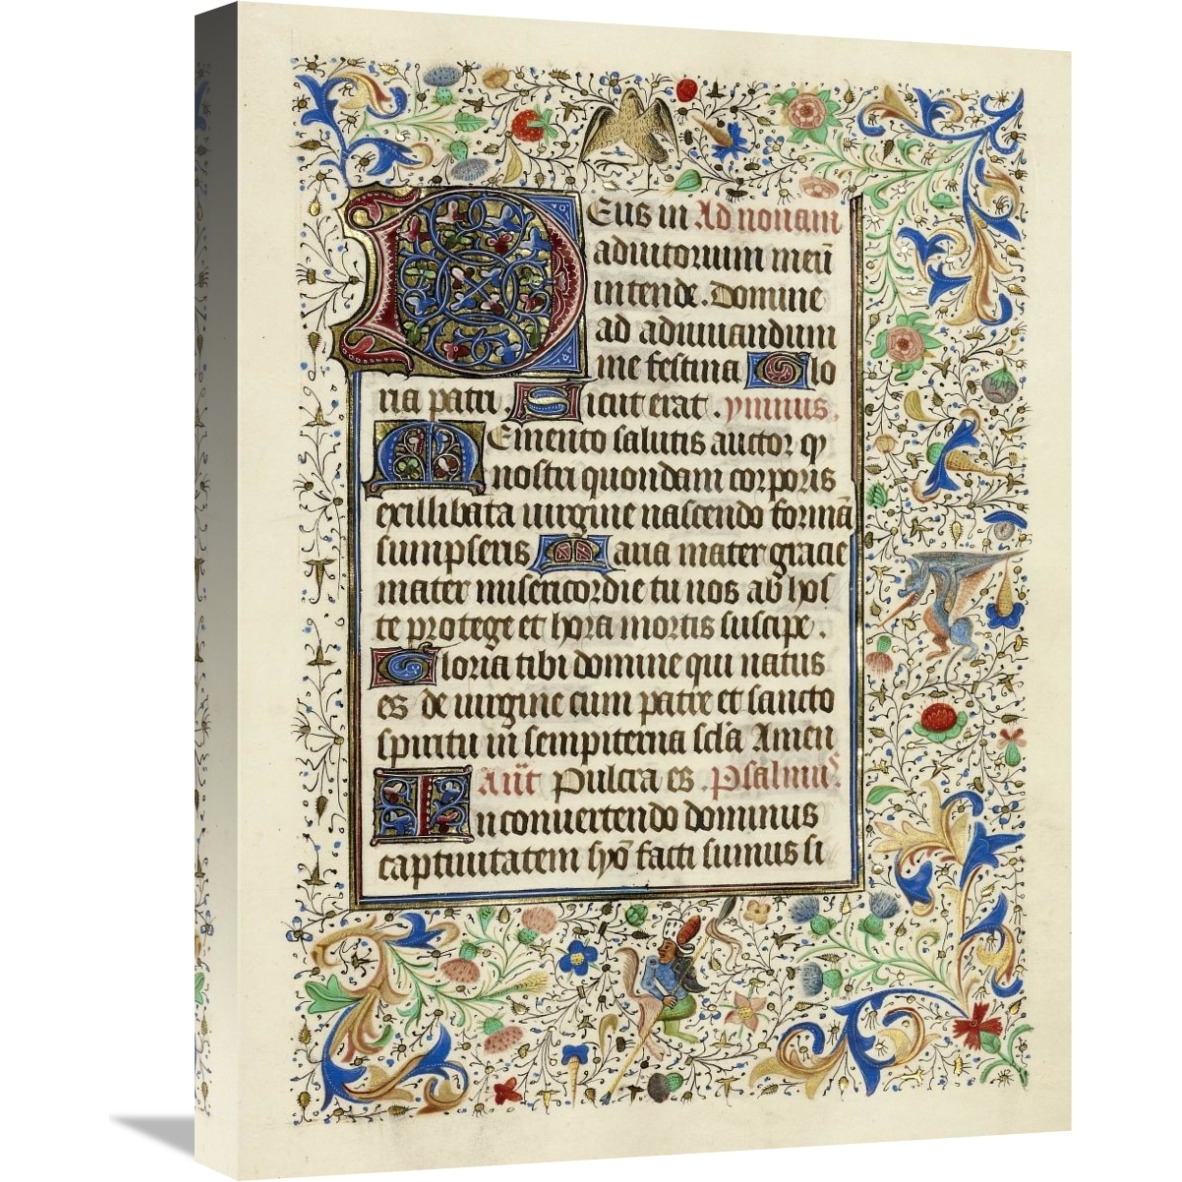 Deus in Ad nonam
adiutorium meū
intende. Domine
ad adiuuandum
me festina Glo
ria patri. Sicut erat. ymnus.
Memento salutis auctor q
nostri quondam corporis
ex illibata uirgine nascendo formā
sumpseris Maria mater gracie
mater misericordie tu nos ab hos
te protege et hora mortis suscipe.
Gloria tibi domine qui natus
es de uirgine cum patre et sancto
spiritu in sempiterna scła Amen
Añt Pulcra es. Psalmus
In conuertendo dominus
captiuitatem syō facti sumus si